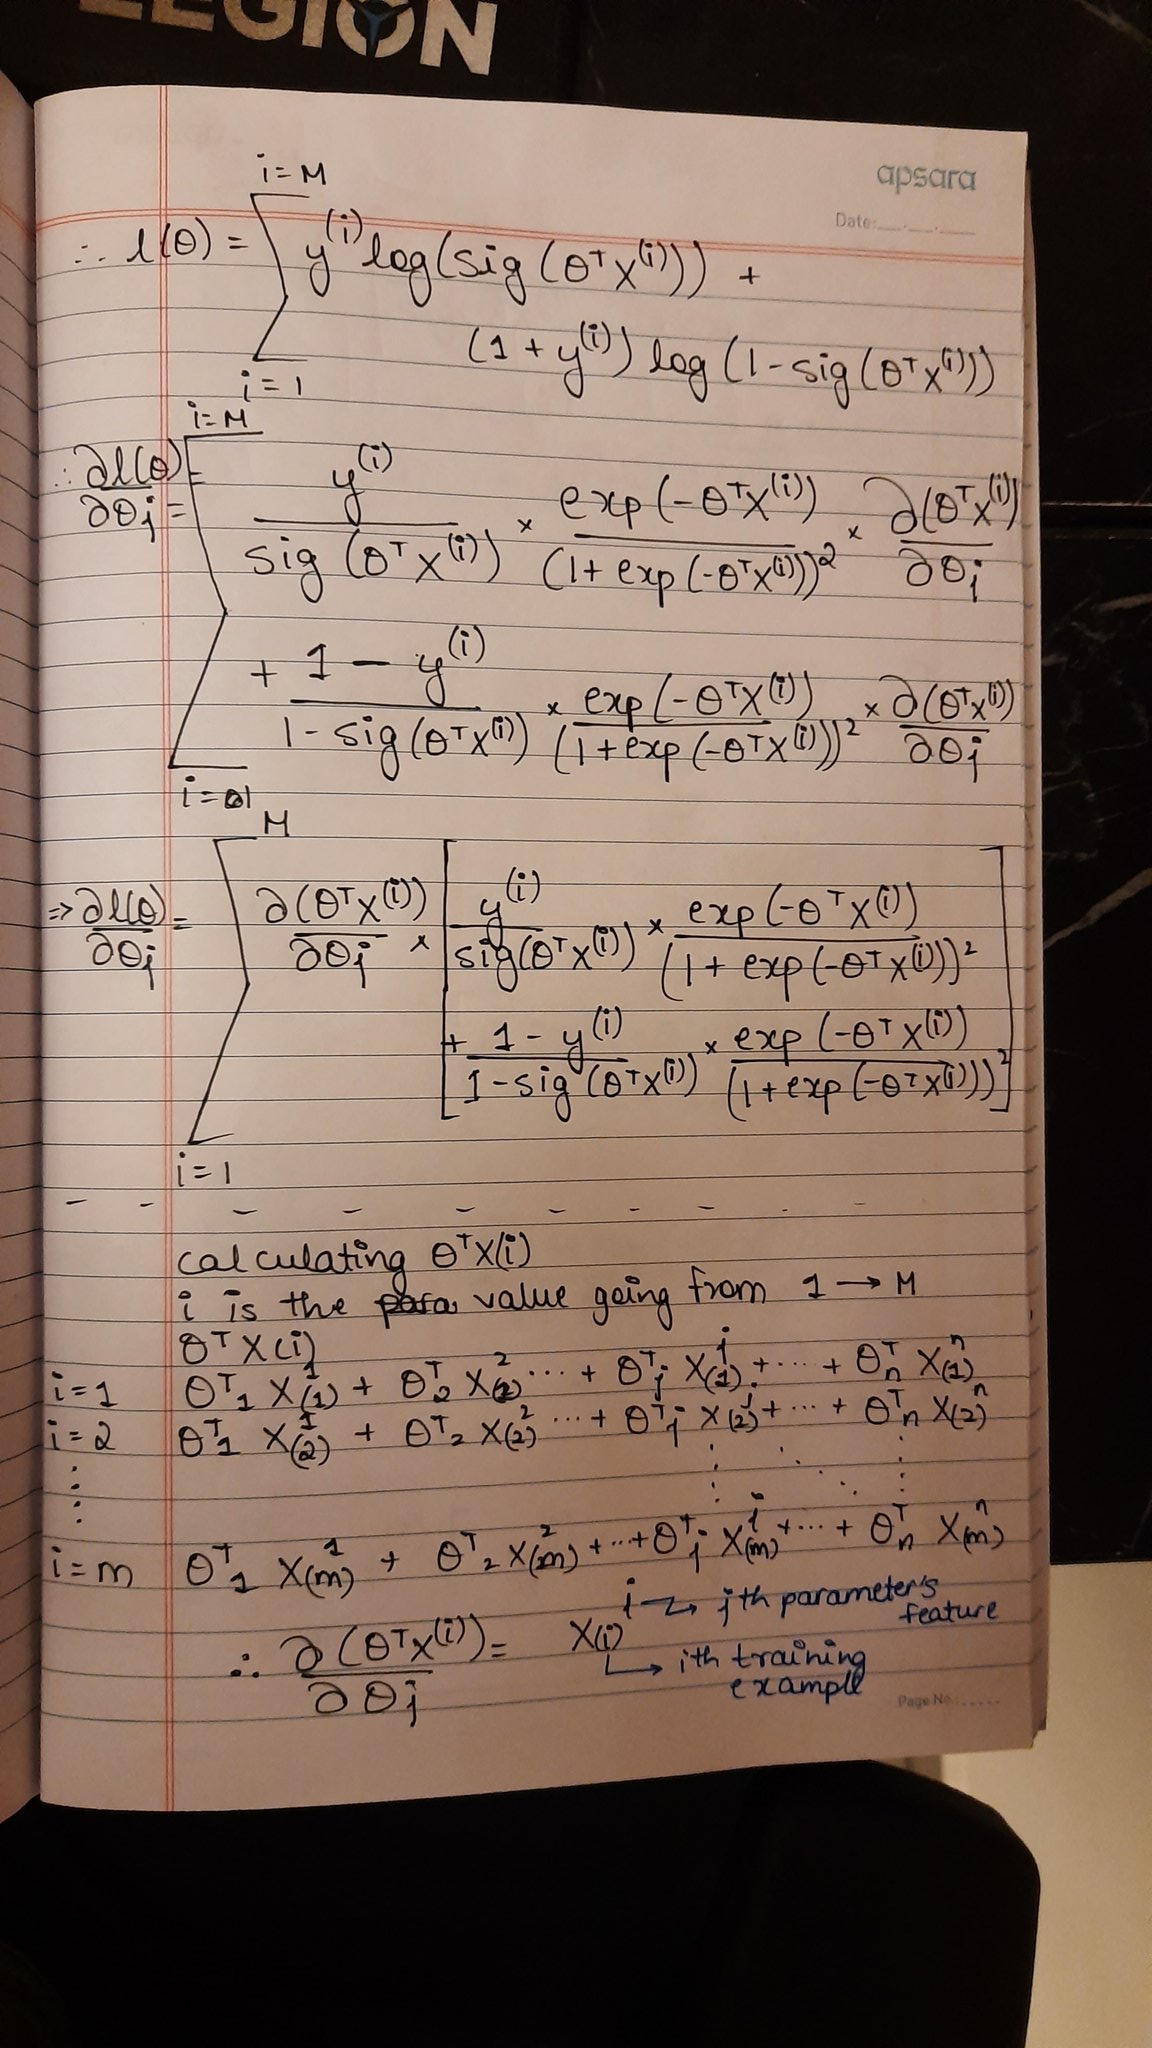 LEGION
apsara
Date:__.__.__
i = M
∴ l(θ) = Σ y^(i) log(sig(θ^T X^(i))) +
(1 + y^(i)) log(1 - sig(θ^T X^(i)))
i = 1
i = M
∴ ∂l(θ)/∂θj = Σ y^(i) / sig(θ^T X^(i)) × exp(-θ^T X^(i)) / (1 + exp(-θ^T X^(i)))^2 × ∂(θ^T X^(i))/∂θj
+ 1 - y^(i) / 1 - sig(θ^T X^(i)) × exp(-θ^T X^(i)) / (1 + exp(-θ^T X^(i)))^2 × ∂(θ^T X^(i))/∂θj
i = 1
M
=> ∂l(θ)/∂θj = Σ ∂(θ^T X^(i))/∂θj × [ y^(i) / sig(θ^T X^(i)) × exp(-θ^T X^(i)) / (1 + exp(-θ^T X^(i)))^2
+ 1 - y^(i) / 1 - sig(θ^T X^(i)) × exp(-θ^T X^(i)) / (1 + exp(-θ^T X^(i)))^2 ]
i = 1
calculating θ^T X(i)
i is the value going from 1 → M
θ^T X(i)
i = 1 θ^T_1 X^1_(1) + θ^T_2 X^2_(1) ... + θ^T_j X^j_(1) + ... + θ^T_n X^n_(1)
i = 2 θ^T_1 X^1_(2) + θ^T_2 X^2_(2) ... + θ^T_j X^j_(2) + ... + θ^T_n X^n_(2)
i = m θ^T_1 X^1_(m) + θ^T_2 X^2_(m) + ... + θ^T_j X^j_(m) + ... + θ^T_n X^n_(m)
∴ ∂(θ^T X^(i))/∂θj = X^j_(i)
j → jth parameter's feature
→ ith training example
Page No.:.....